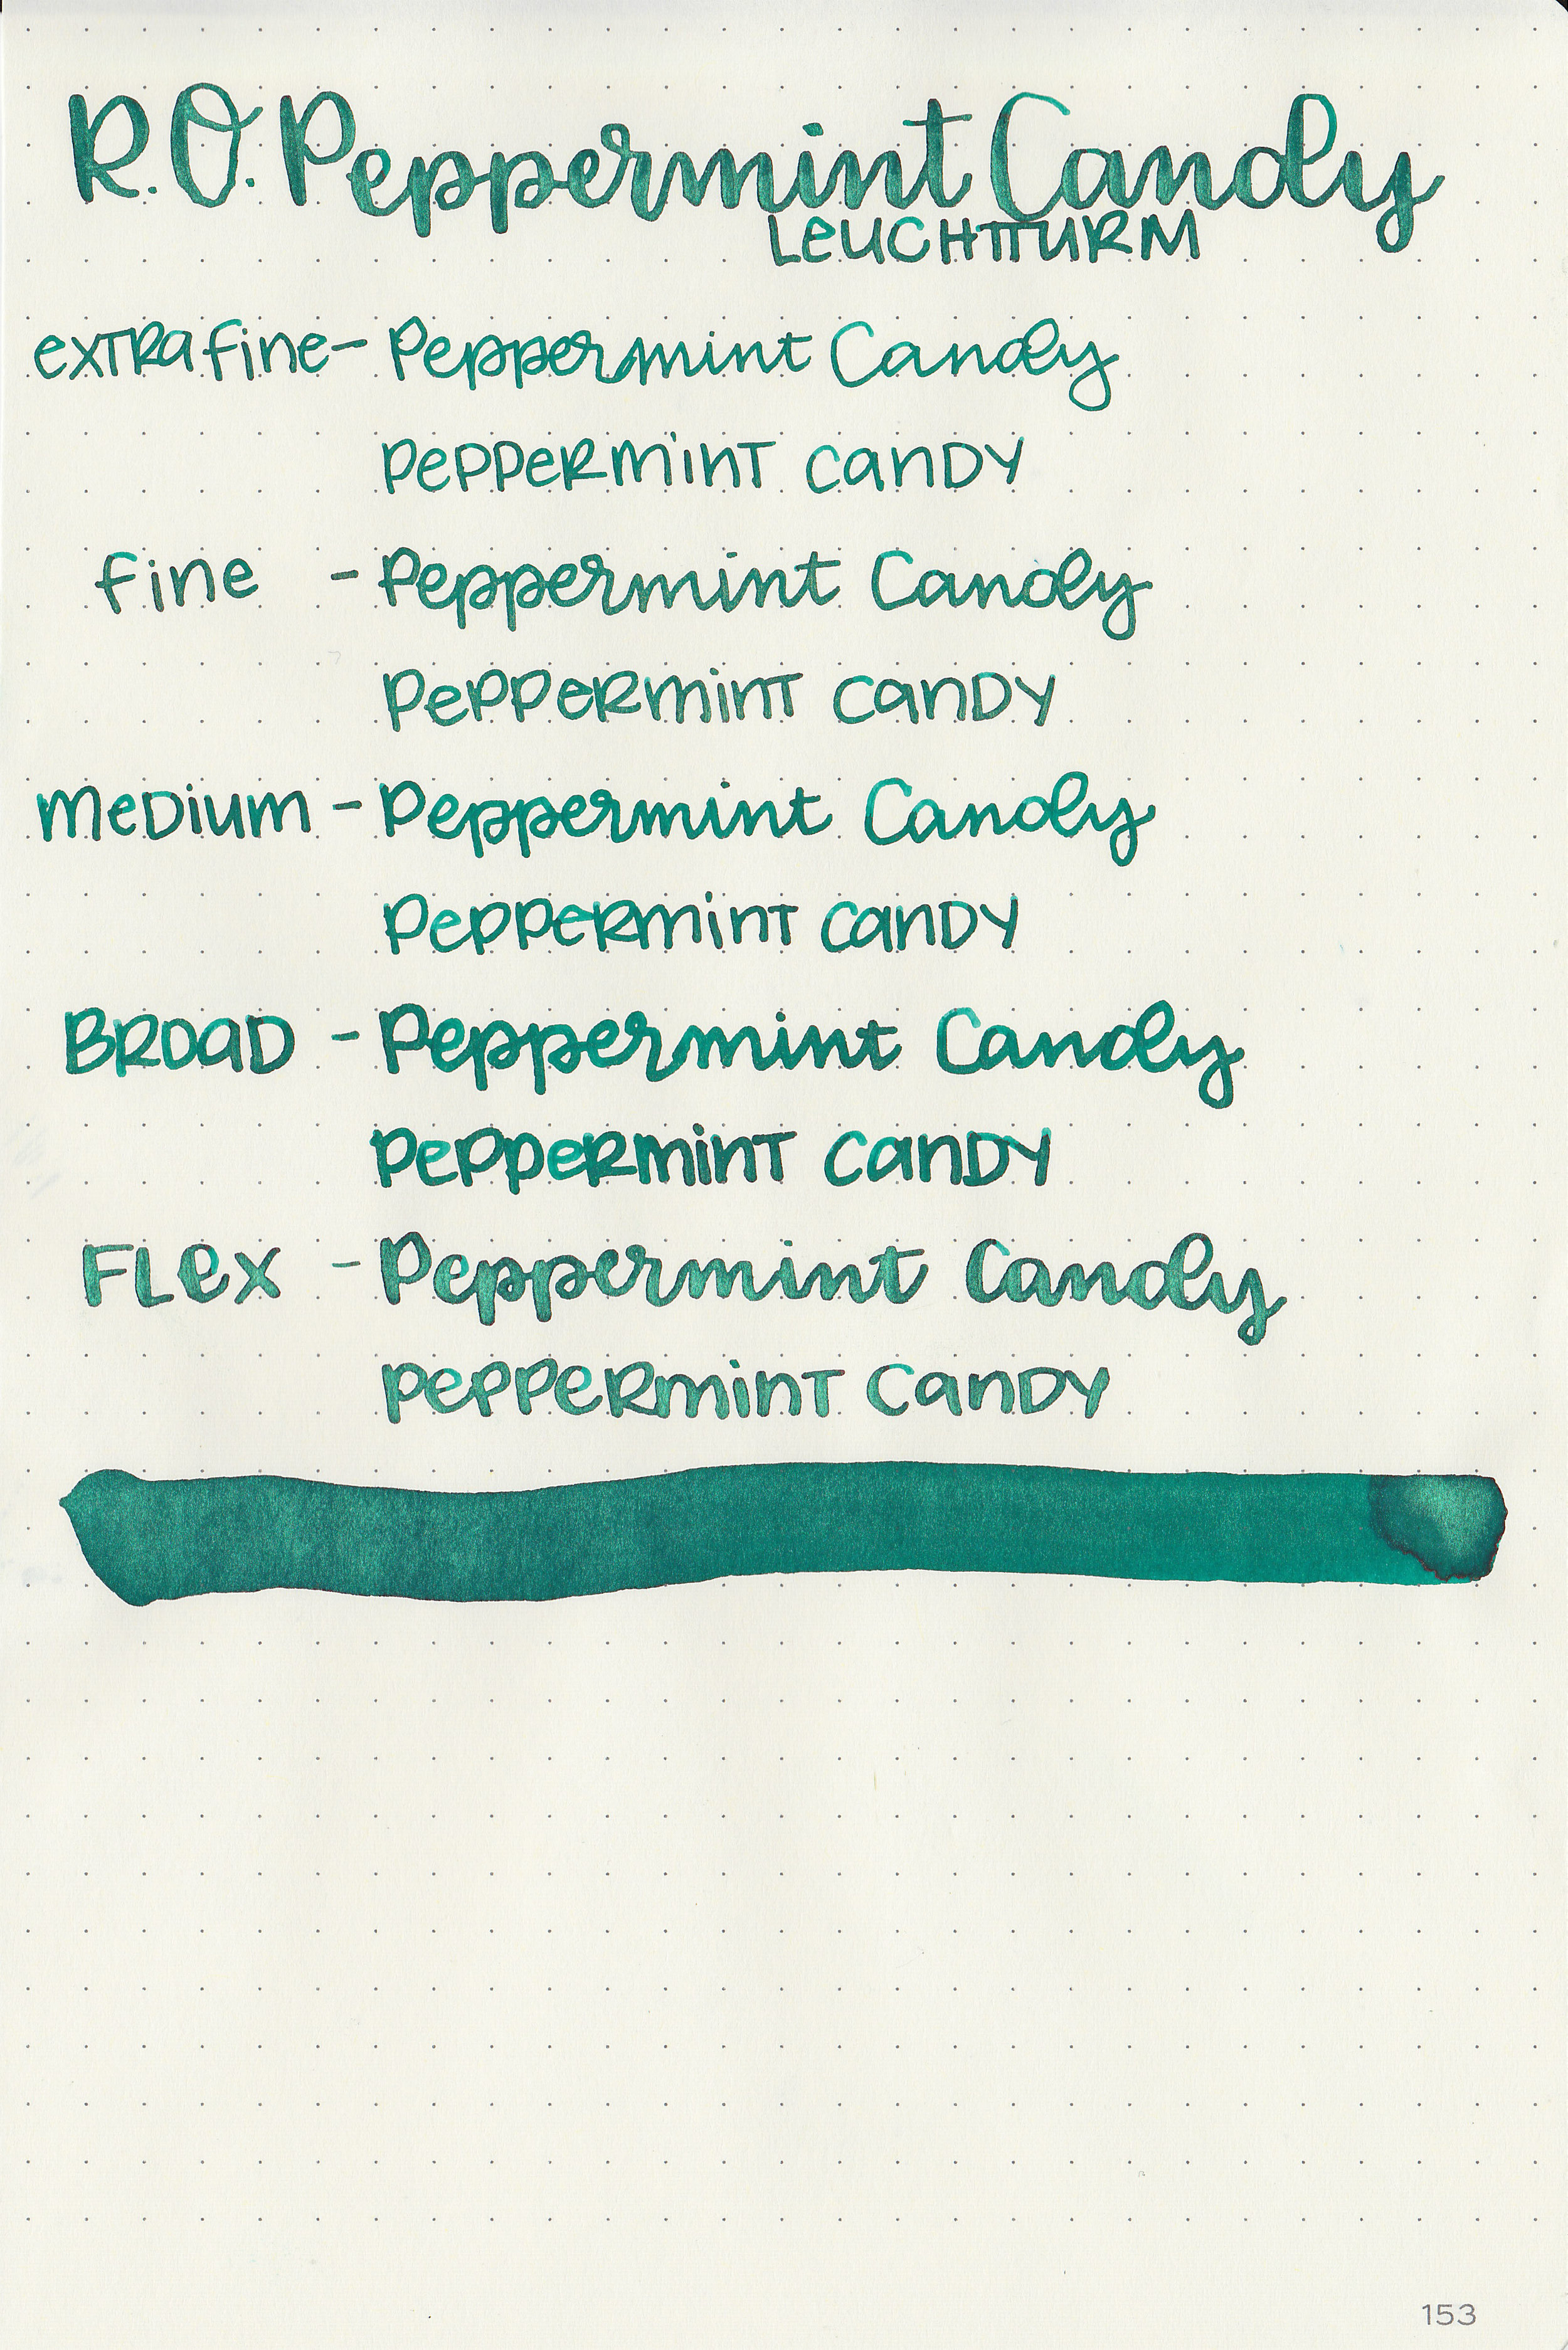 R.O. Peppermint Candy
LEUCHTTURM
extra fine - Peppermint Candy
Peppermint Candy
fine - Peppermint Candy
Peppermint Candy
Medium - Peppermint Candy
Peppermint Candy
Broad - Peppermint Candy
Peppermint Candy
Flex - Peppermint Candy
Peppermint Candy
153